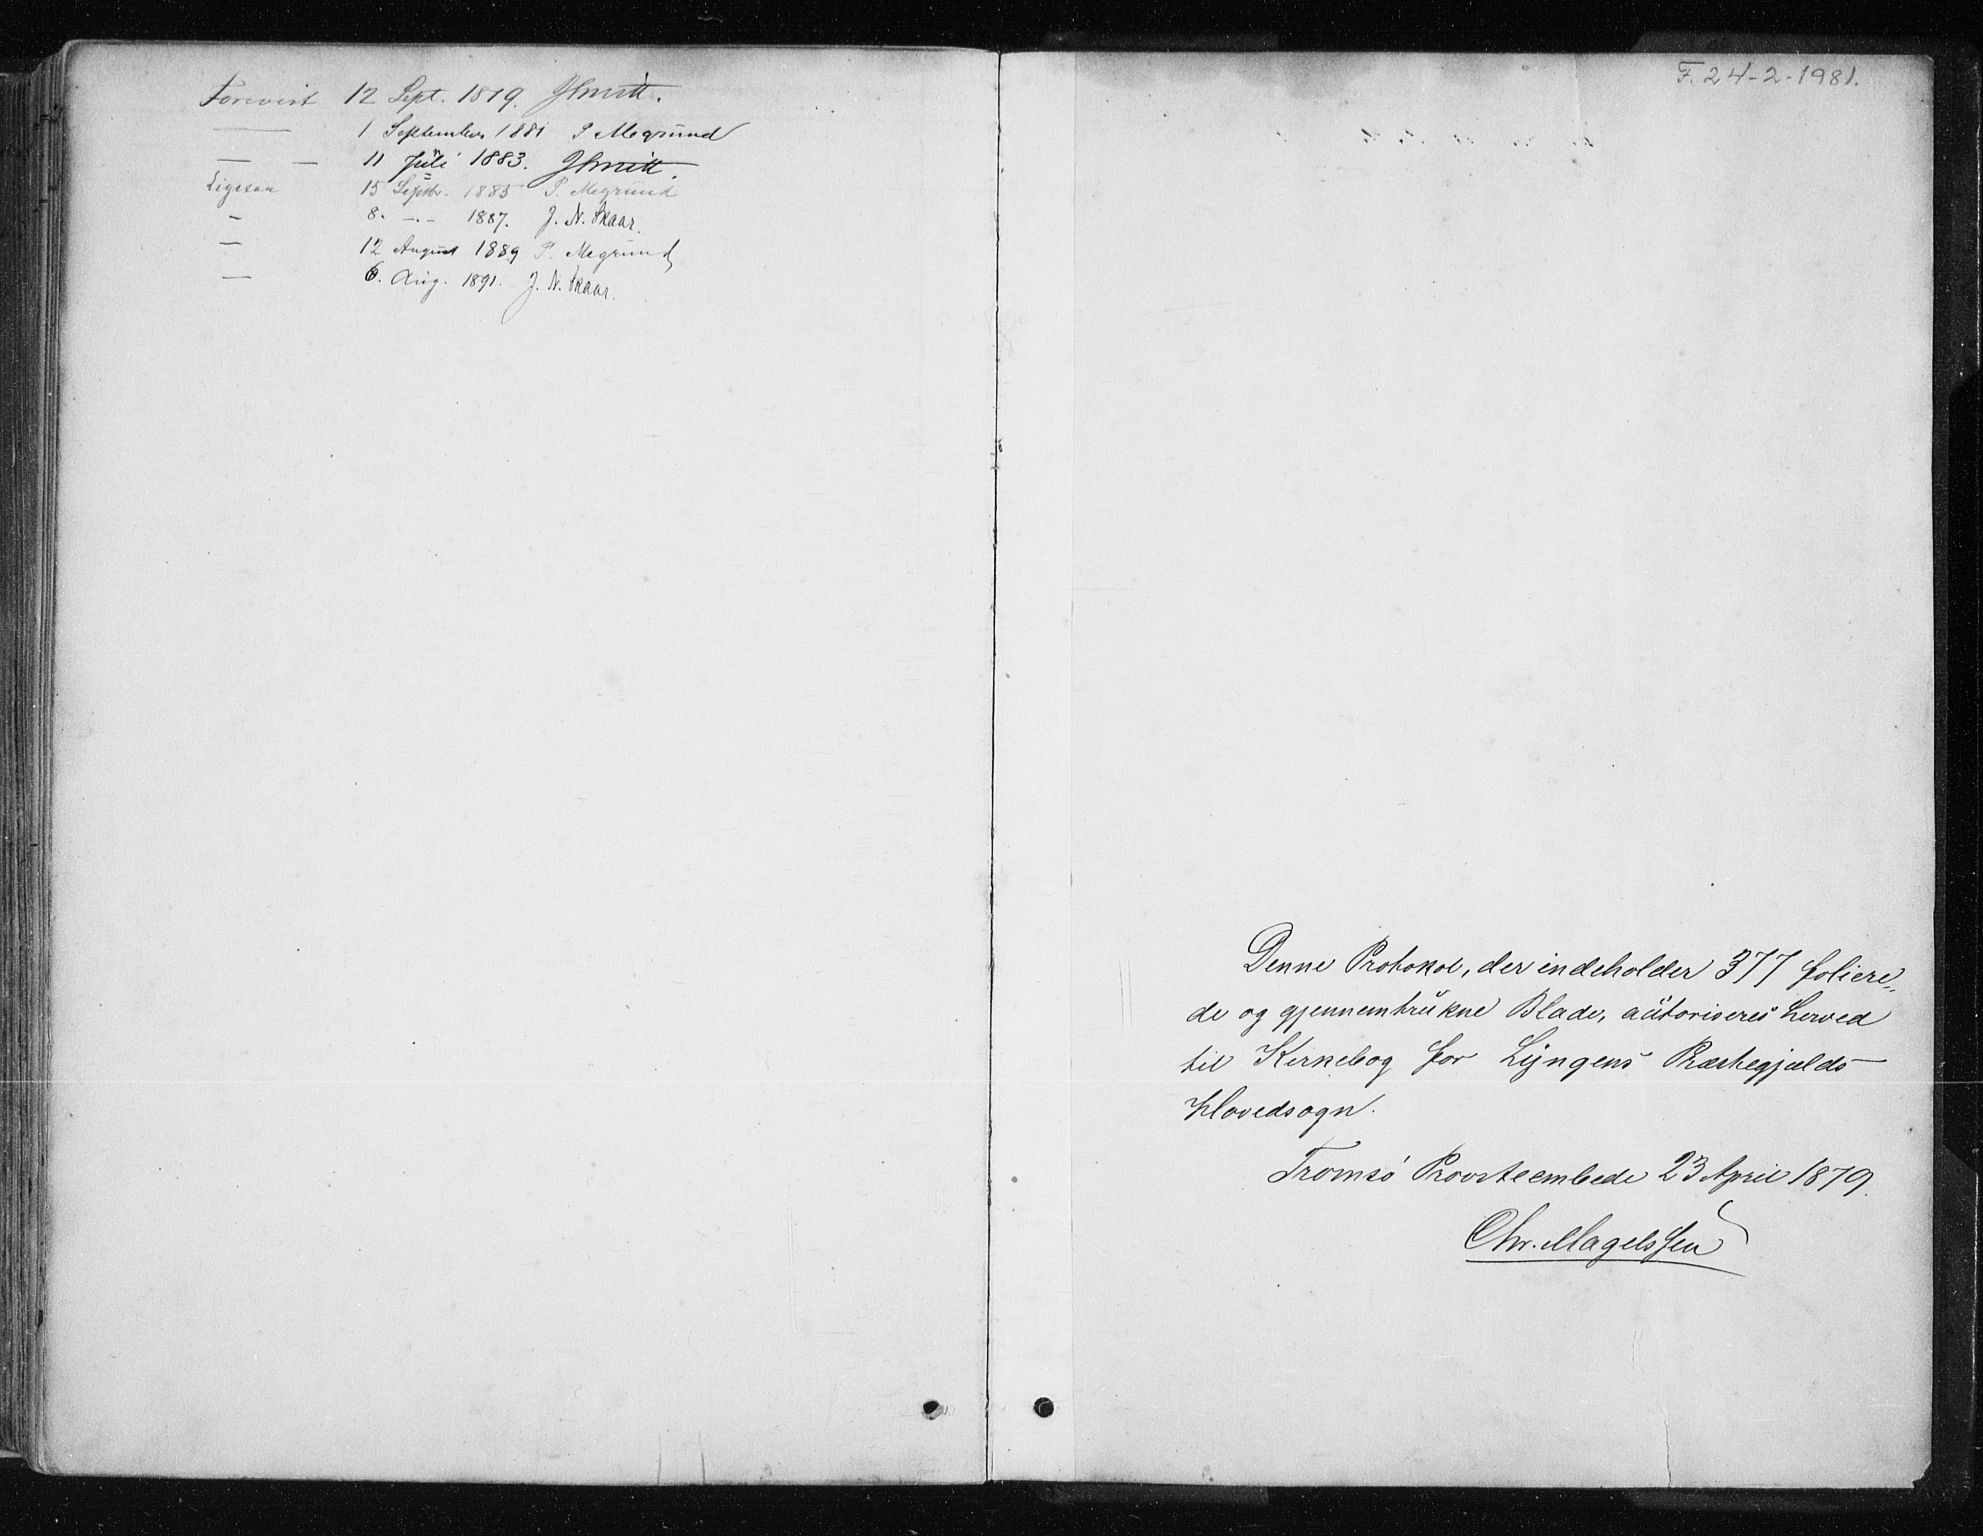 Forevist 12 Sept. 1879. JSmitt.
— 1 September 1881 P Megrund
— — 11 Juli 1883. JSmitt.
Ligesaa 15 Septbr. 1885 P. Megrund
— 8. -.- 1887. J. N. Skaar.
— 12 August 1889 P. Megrund
— 6. Aug. 1891. J. N. Skaar.
F. 24-2-1981.
Denne Protokol, der indeholder 377 foliere„
de og gjennemtrukne Blade, autoriseres herved
til Kirkebog for Lyngens Præstegjælds
Hovedsogn.
Tromsö Provsteembede 23 April 1879.
Chr. Magelssen